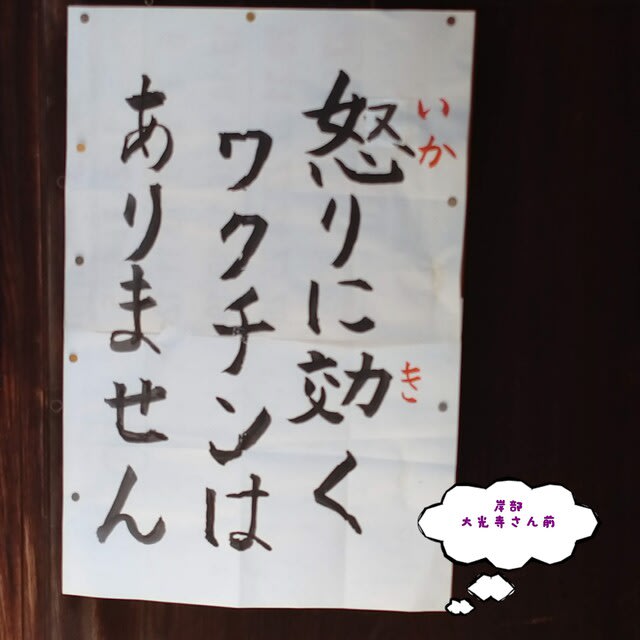 怒りに効く
いか
き
ワクチンは
ありません
岸部
大光寺さん前